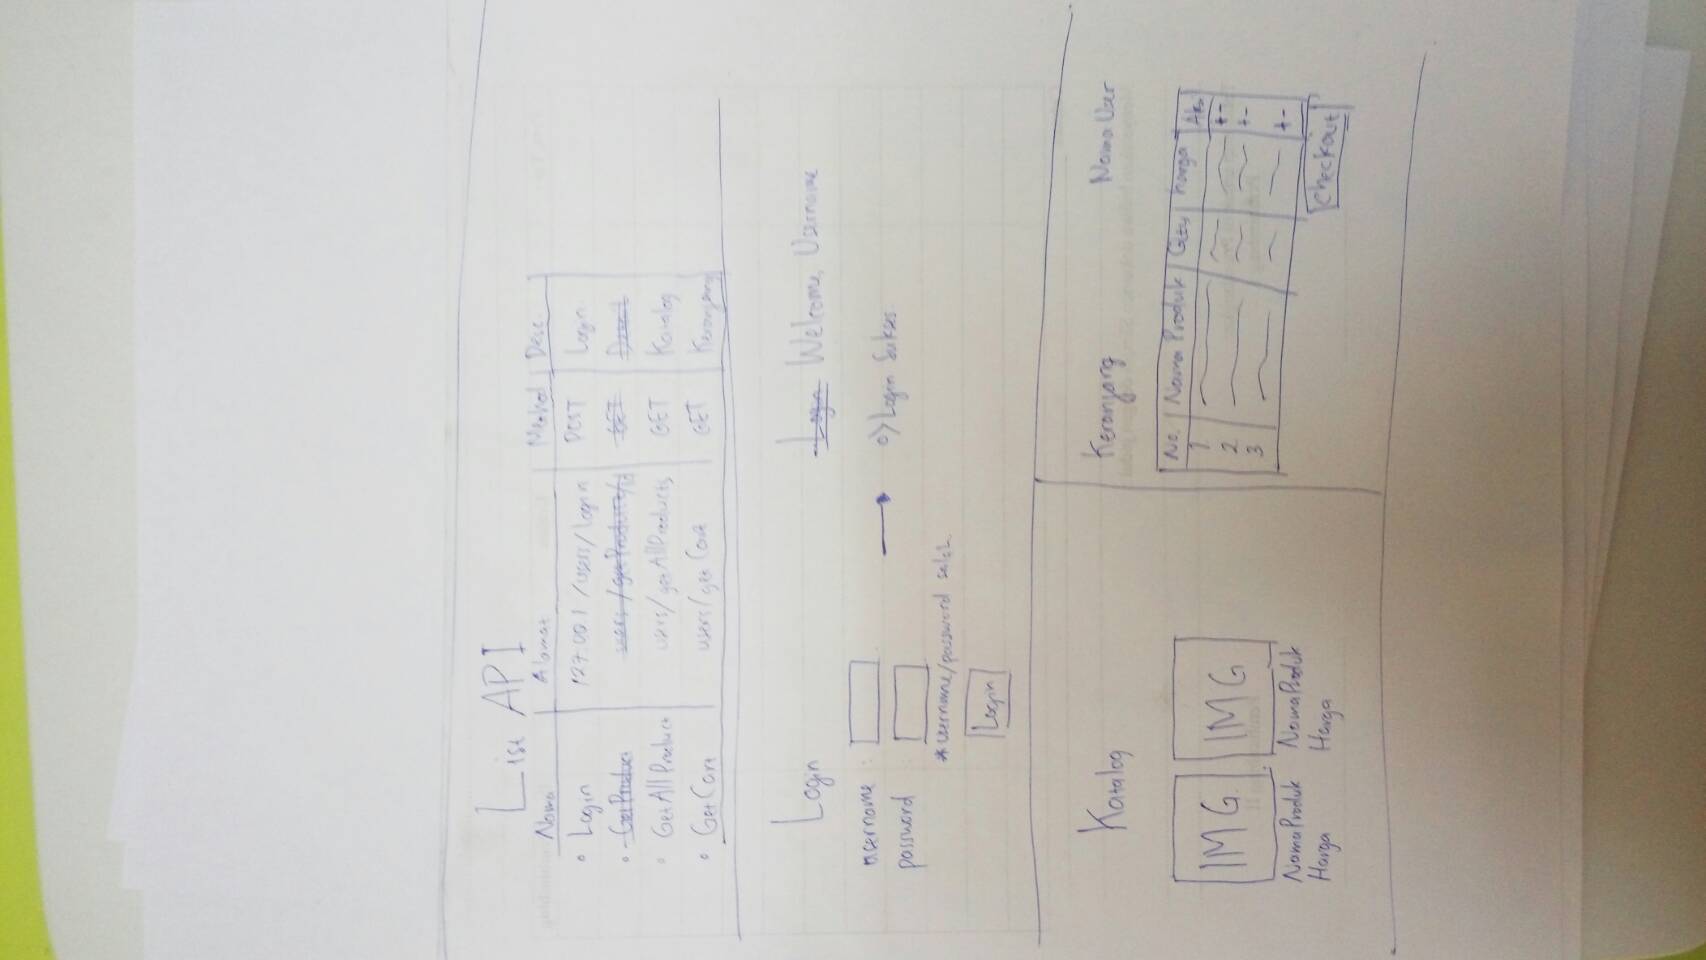 List API
Nama Alamat Method Desc.
• Login 127.00.1/users/login POST Login
• GetProduct users/getProducts/id GET
• GetAllProduct users/getAllProducts GET Katalog
• GetCart users/getCart GET Keranjang
Login
username :
password :
*username/password salah
Login
Login Welcome, Username
=> Login Sukses
Katalog
IMG IMG
NamaProduk NamaProduk
Harga Harga
Keranjang Nama User
No. Nama Produk Qty Harga
1 + -
2 + -
3 + -
Checkout